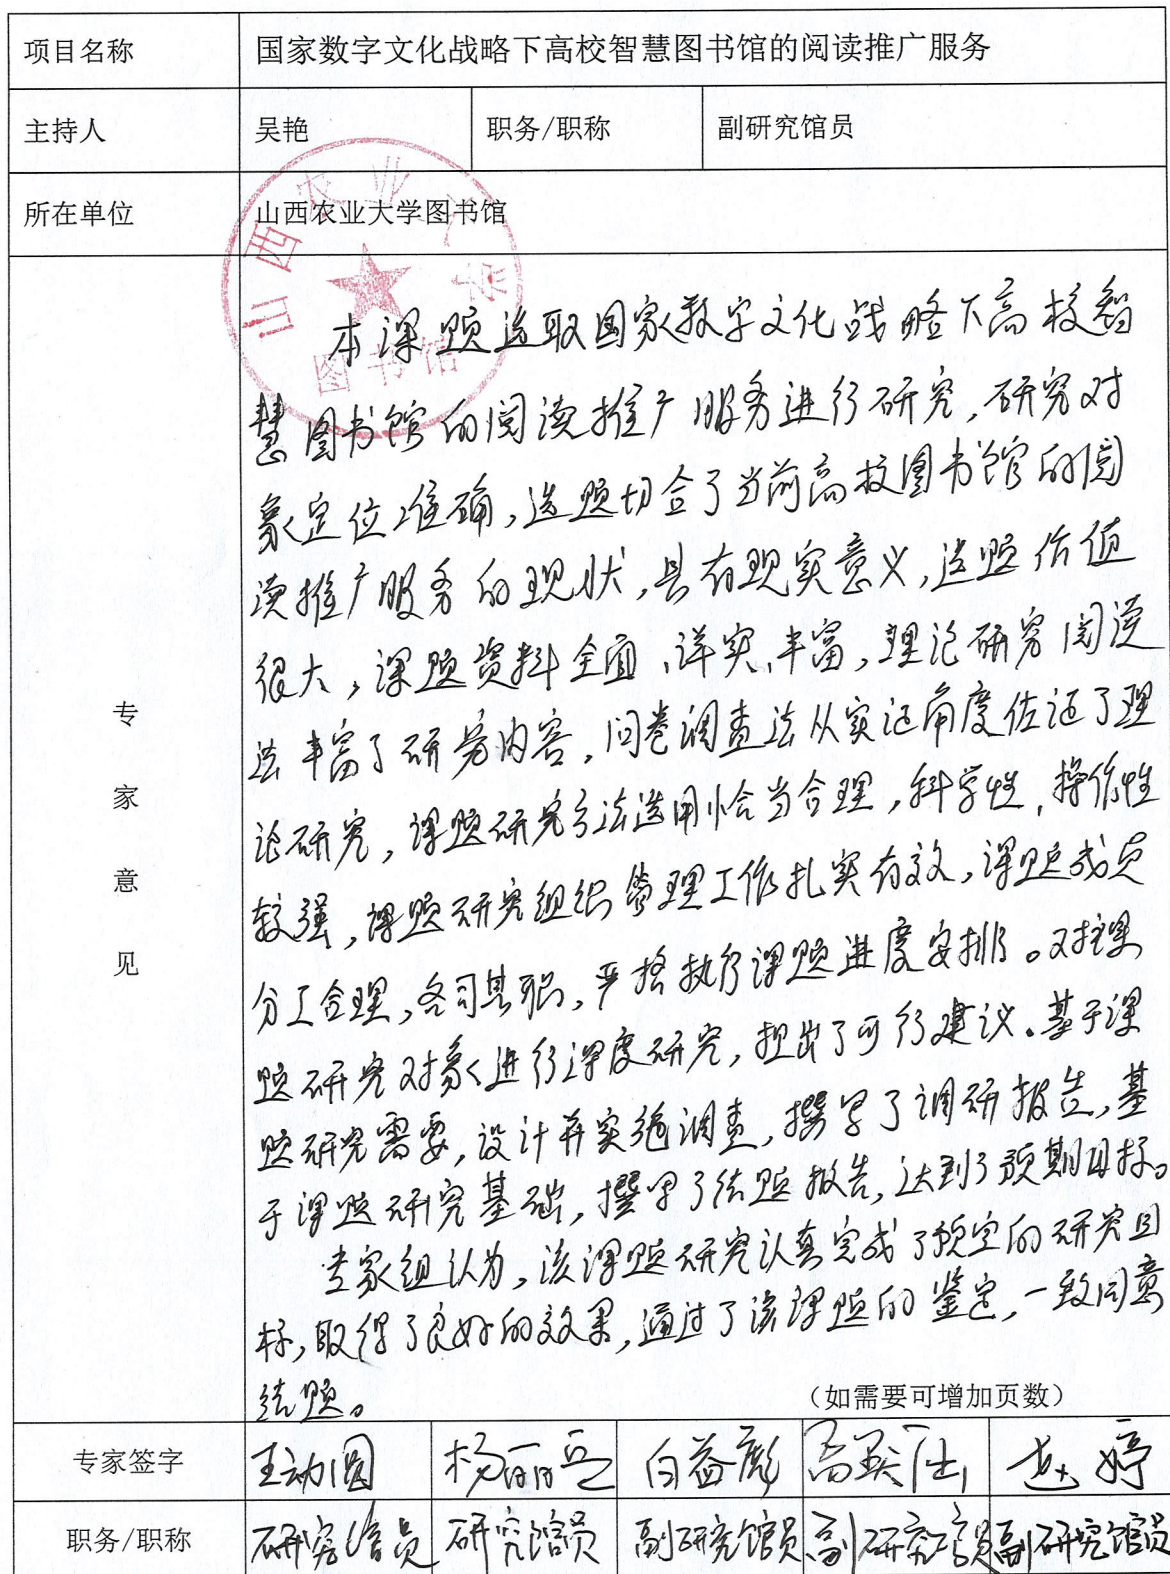 项目名称 国家数字文化战略下高校智慧图书馆的阅读推广服务
主持人 吴艳 职务/职称 副研究馆员
所在单位 山西农业大学图书馆
山西农业大学
图书馆
专家意见
本课题选取国家数字文化战略下高校智
慧图书馆的阅读推广服务进行研究,研究对
象定位准确,选题切合了当前高校图书馆的阅
读推广服务的现状,具有现实意义,选题价值
很大,课题资料全面、详实、丰富,理论研究阅读
法丰富了研究内容,问卷调查法从实证角度佐证了理
论研究,课题研究方法选用恰当合理,科学性,操作性
较强,课题研究组织管理工作扎实有效,课题成员
分工合理,各司其职,严格执行课题进度安排。对课
题研究对象进行深度研究,提出了可行建议。基于课
题研究需要,设计并实施调查,撰写了调研报告,基
于课题研究基础,撰写了结题报告,达到了预期目标。
专家组认为,该课题研究认真完成了预定的研究目
标,取得了良好的效果,通过了该课题的鉴定,一致同意
结题。
(如需要可增加页数)
专家签字 王动圆 杨丽 白益彪 高 婷
职务/职称 研究馆员 研究馆员 副研究馆员 副研究馆员 副研究馆员